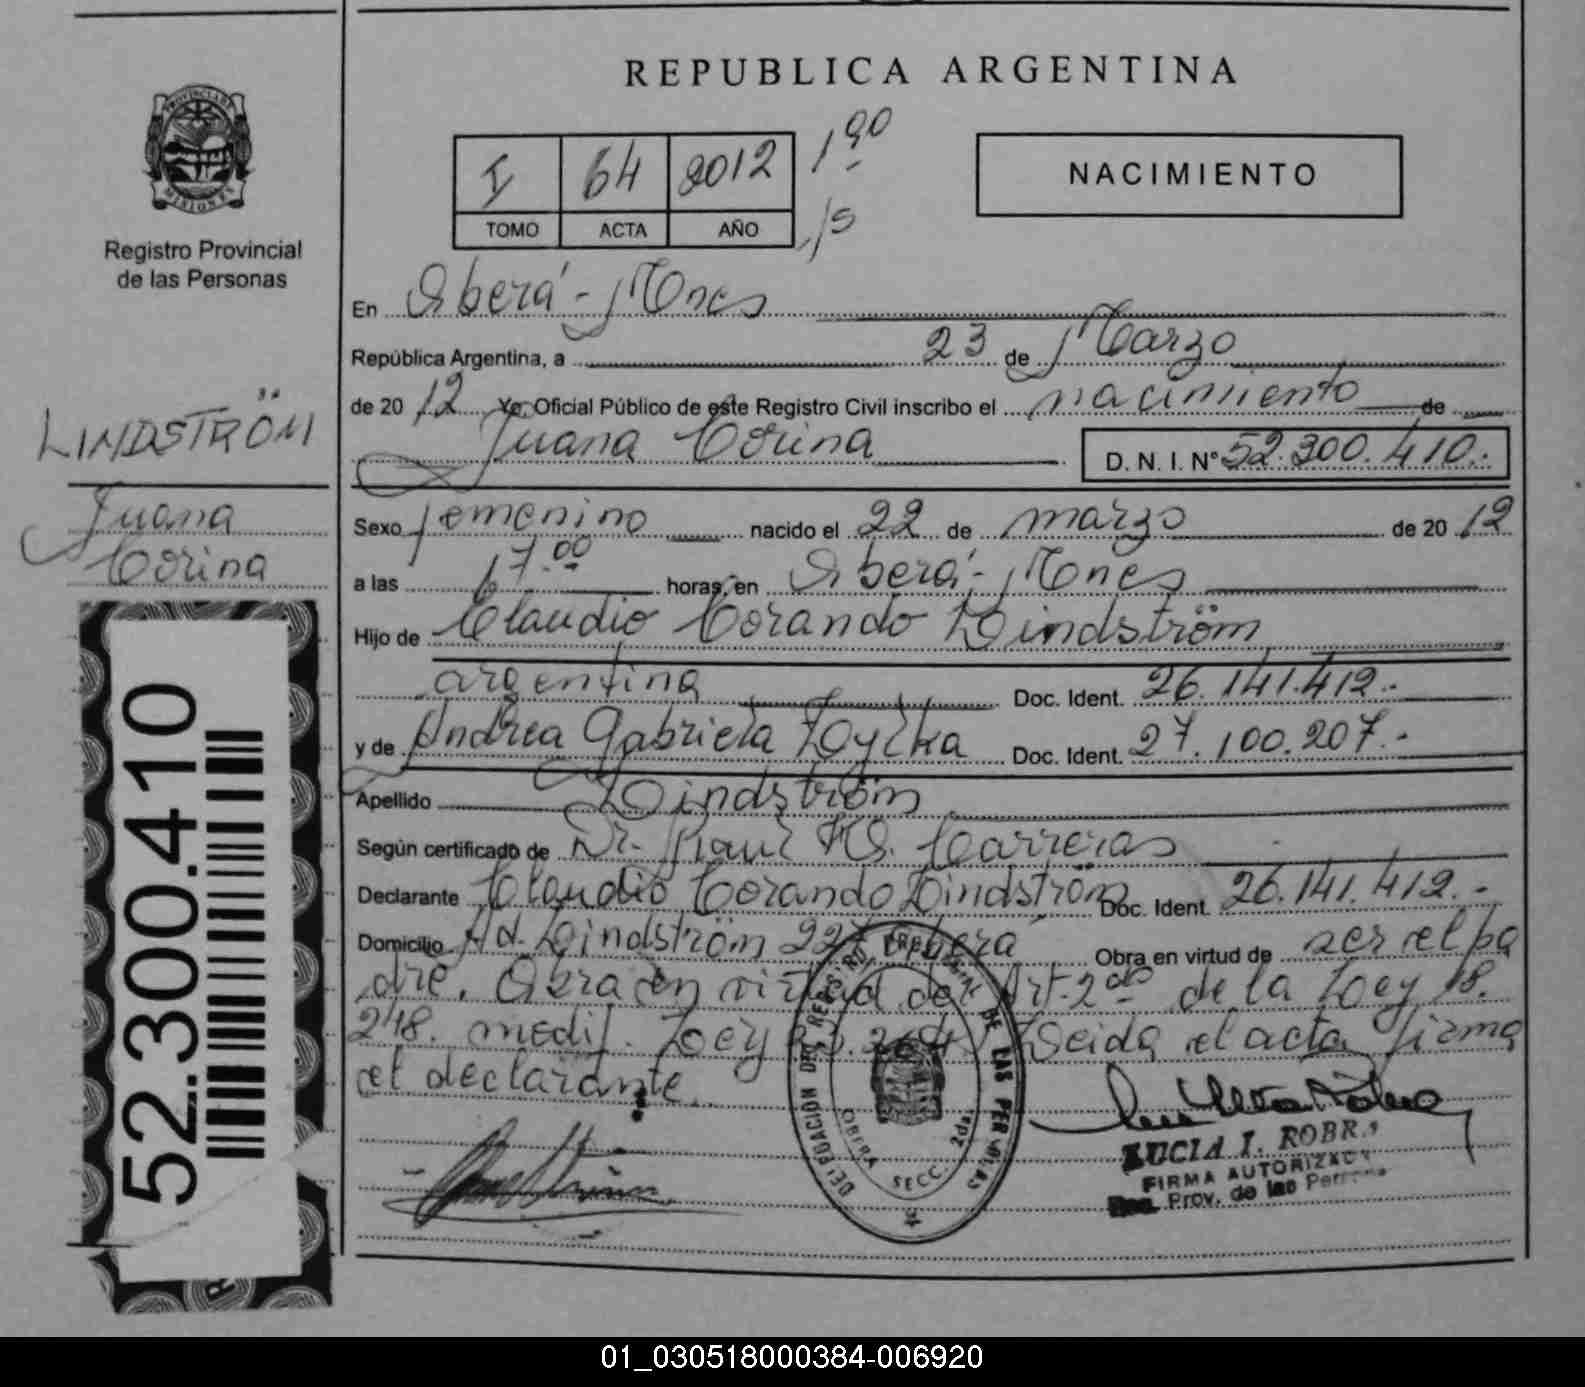 REPUBLICA ARGENTINA
PROVINCIA DE
MISIONES
Registro Provincial
de las Personas
I 64 2012 1 90
TOMO ACTA AÑO 1/5
NACIMIENTO
En Oberá - Mnes
República Argentina, a 23 de Marzo
de 20 12 Yo, Oficial Público de este Registro Civil inscribo el nacimiento de
Juana Corina D. N. I. N° 52.300.410.-
LINDSTRÖM
Juana
Corina
Sexo femenino nacido el 22 de marzo de 20 12
a las 17.00 horas, en Oberá - Mnes
Hijo de Claudio Corando Lindström
argentina Doc. Ident. 26.141.412.-
y de Andrea Gabriela Doc. Ident. 27.100.207.-
Apellido Lindström
Según certificado de Dr. Raul Carreras
Declarante Claudio Corando Lindström Doc. Ident. 26.141.412.-
Domicilio Ad. Lindström 227 Oberá Obra en virtud de ser el pa
dre. Obra en virtud del Art. 2do de la Ley 18.
248. modif. Ley 23.264. Leida el acta firma
el declarante.
DELEGACIÓN DEL REGISTRO PROVINCIAL DE LAS PERSONAS
OBERA SECC. 2da
LUCIA I. ROBR
FIRMA AUTORIZADA
Reg. Prov. de las Personas
52.300.410
01_030518000384-006920